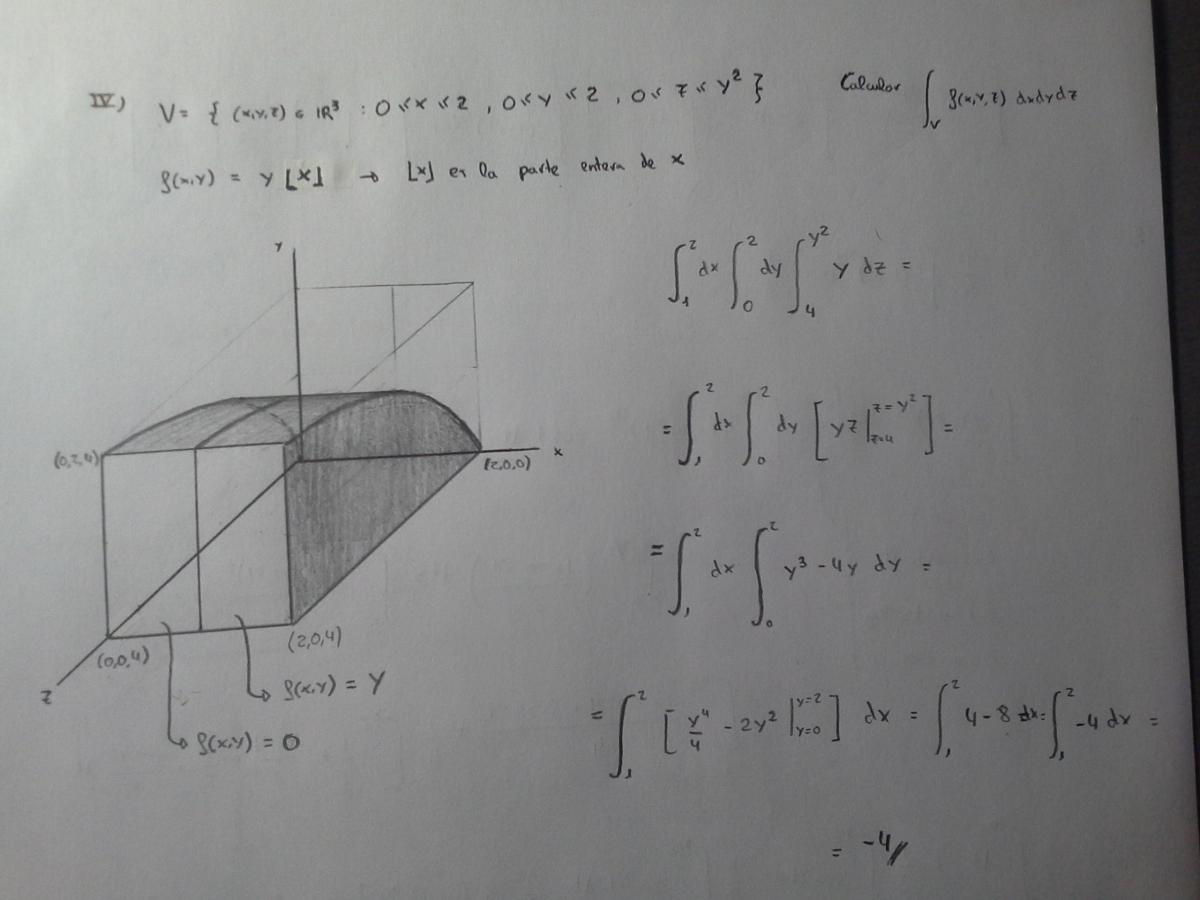 IV) V = { (x,y,z) ∈ IR³ : 0 ≤ x ≤ 2 , 0 ≤ y ≤ 2 , 0 ≤ z ≤ y² } Calcular ∫_V f(x,y,z) dxdydz
f(x,y) = y ⌊x⌋ → ⌊x⌋ es la parte entera de x
y
x
z
(0,2,4)
(2,0,0)
(0,0,4)
(2,0,4)
f(x,y) = y
f(x,y) = 0
∫_1^2 dx ∫_0^2 dy ∫_4^{y²} y dz =
= ∫_1^2 dx ∫_0^2 dy [ yz |_{z=4}^{z=y²} ] =
= ∫_1^2 dx ∫_0^2 y³ - 4y dy =
= ∫_1^2 [ y⁴/4 - 2y² |_{y=0}^{y=2} ] dx = ∫_1^2 4 - 8 dx = ∫_1^2 -4 dx =
= -4//